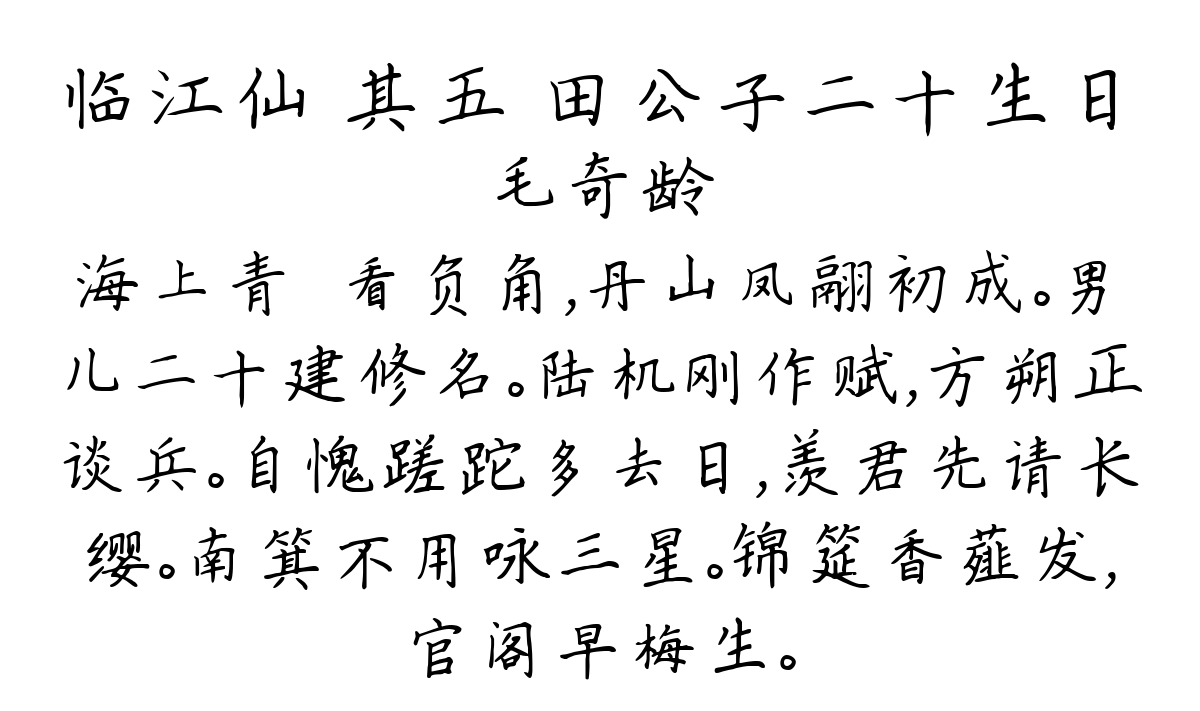 临江仙 其五 田公子二十生日
毛奇龄
海上青 看负角,丹山凤翮初成。男
儿二十建修名。陆机刚作赋,方朔正
谈兵。自愧蹉跎多去日,羡君先请长
缨。南箕不用咏三星。锦筵香薤发,
官阁早梅生。